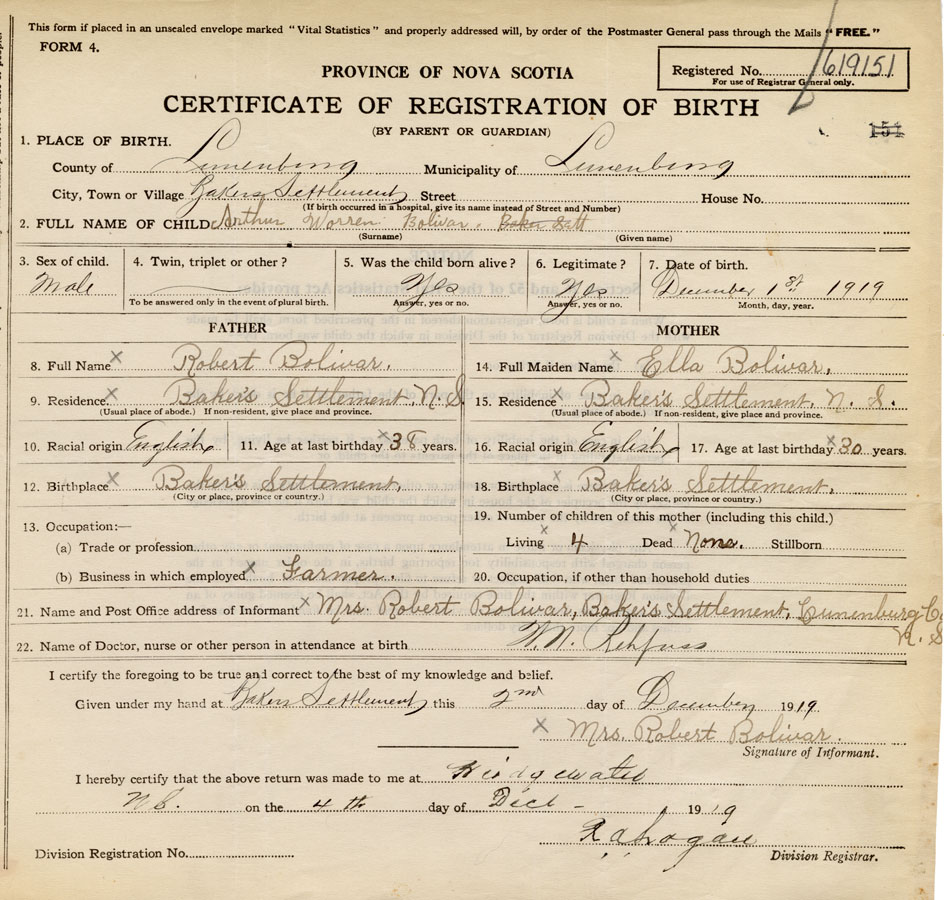 This form if placed in an unsealed envelope marked "Vital Statistics" and properly addressed will, by order of the Postmaster General pass through the Mails "FREE."
FORM 4.
Registered No. 619151
For use of Registrar General only.
PROVINCE OF NOVA SCOTIA
CERTIFICATE OF REGISTRATION OF BIRTH
(BY PARENT OR GUARDIAN)
151
1. PLACE OF BIRTH.
County of Lunenburg Municipality of Lunenburg
City, Town or Village Bakers Settlement Street House No.
(If birth occurred in a hospital, give its name instead of Street and Number)
2. FULL NAME OF CHILD Arthur Worren Bolivar. Baker Sett
(Surname) (Given name)
3. Sex of child. 4. Twin, triplet or other? 5. Was the child born alive? 6. Legitimate? 7. Date of birth.
Male Yes Yes December 1st 1919
To be answered only in the event of plural birth. Answer, yes or no. Answer, yes or no. Month, day, year.
FATHER MOTHER
8. Full Name x Robert Bolivar. 14. Full Maiden Name x Ella Bolivar.
9. Residence x Baker's Settlement, N. S. 15. Residence x Baker's Settlement, N. S.
(Usual place of abode.) If non-resident, give place and province. (Usual place of abode.) If non-resident, give place and province.
10. Racial origin English 11. Age at last birthday x 38 years. 16. Racial origin English 17. Age at last birthday x 30 years.
12. Birthplace x Baker's Settlement, 18. Birthplace x Baker's Settlement,
(City or place, province or country.) (City or place, province or country.)
13. Occupation:— 19. Number of children of this mother (including this child.)
(a) Trade or profession Living x 4 Dead x None. Stillborn
(b) Business in which employed x Farmer. 20. Occupation, if other than household duties
21. Name and Post Office address of Informant x Mrs. Robert Bolivar, Baker's Settlement, Lunenburg Co
N. S
22. Name of Doctor, nurse or other person in attendance at birth W. N. Rehfuss
I certify the foregoing to be true and correct to the best of my knowledge and belief.
Given under my hand at Bakers Settlement this 2nd day of December 1919
x Mrs. Robert Bolivar.
Signature of Informant.
I hereby certify that the above return was made to me at Bridgewater
N.S. on the 4th day of Dect - 1919
Division Registrar.
Division Registration No.